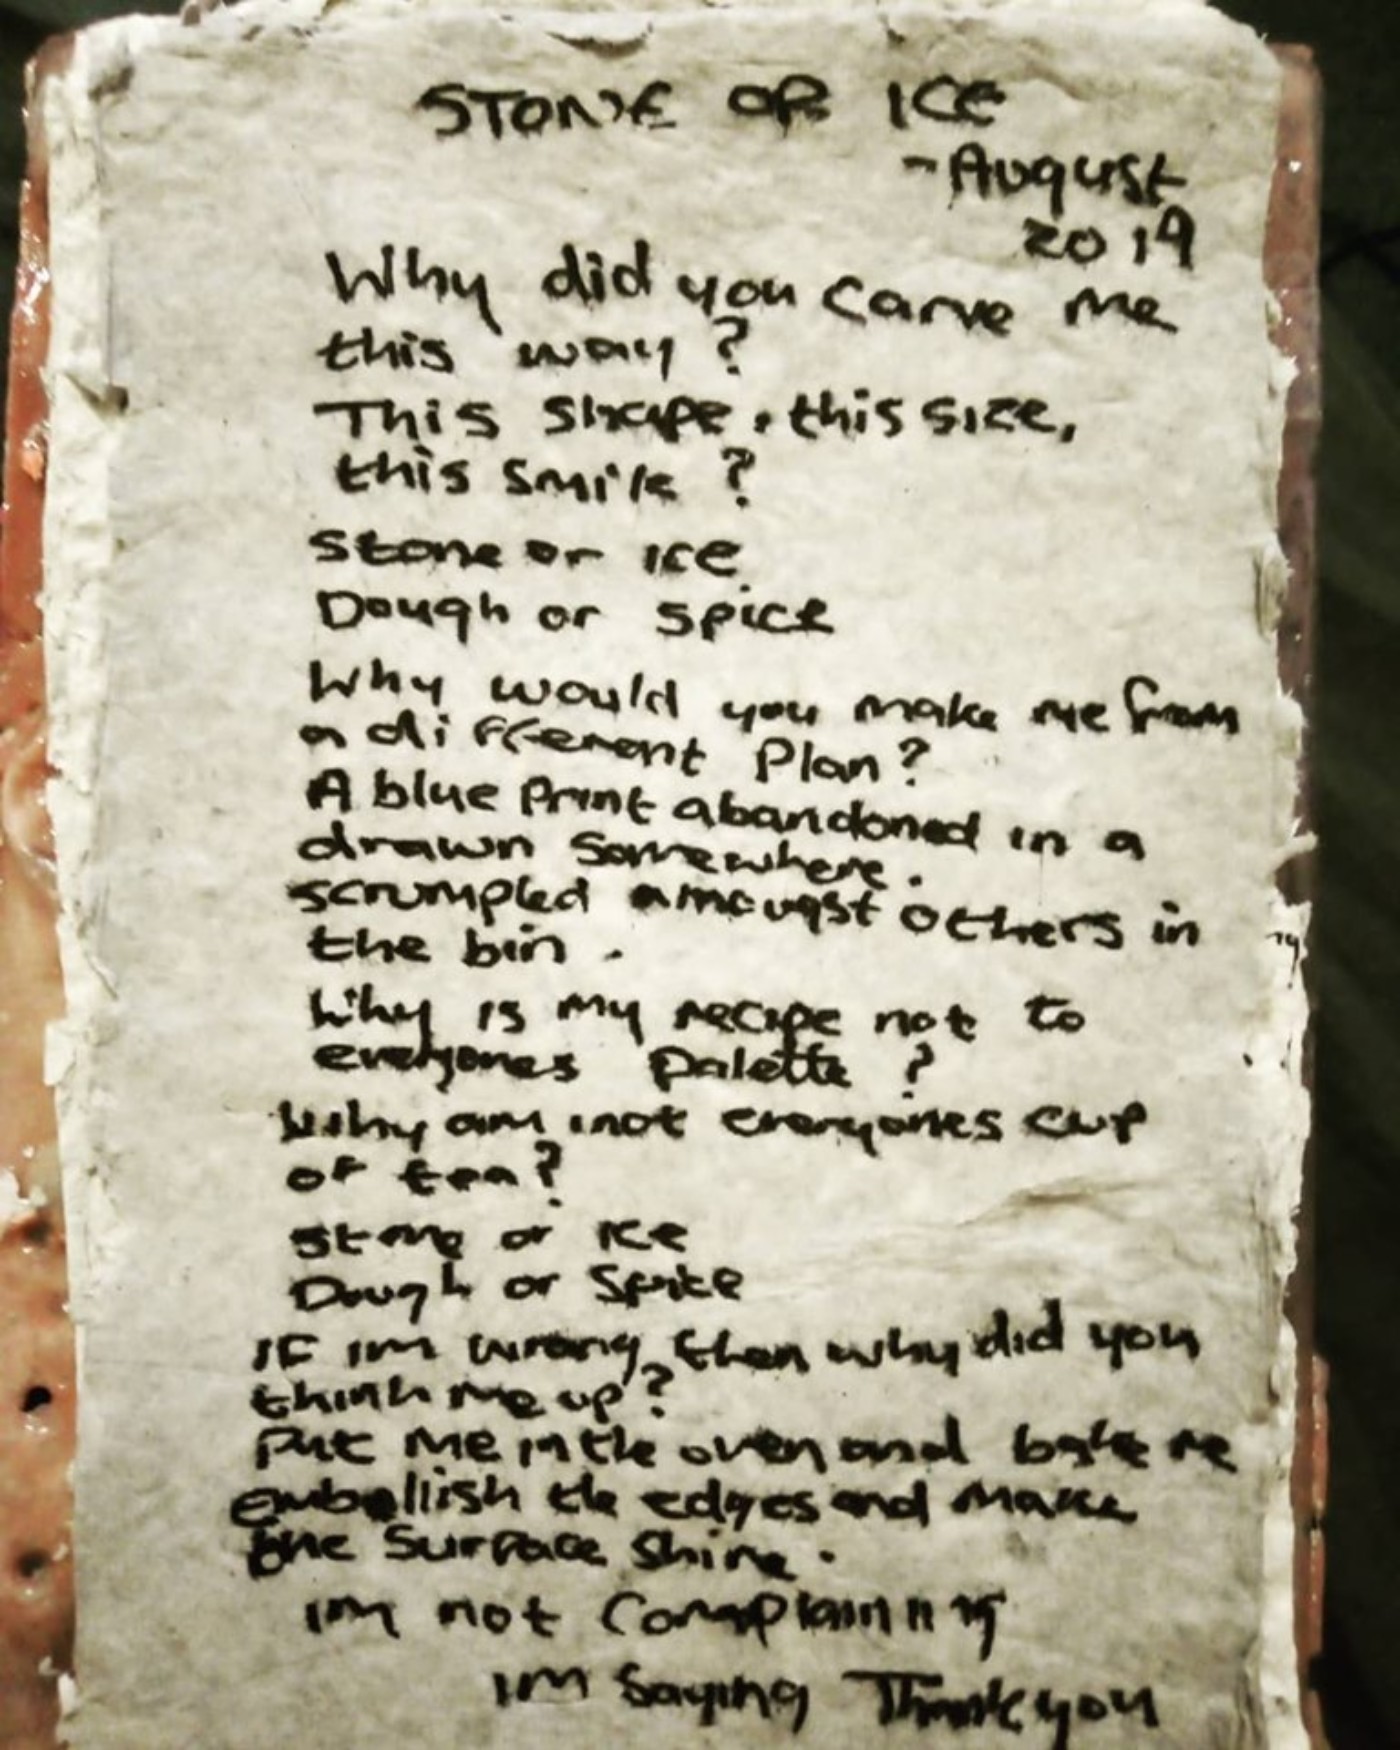 STONE OR ICE
- August
2019
Why did you carve me
this way?
This shape, this size,
this smile?
Stone or ice
Dough or spice
Why would you make me from
a different Plan?
A blue Print abandoned in a
drawn somewhere.
scrumpled amoungst others in
the bin.
Why is my recipe not to
everyones Palette?
Why am i not everyones cup
of tea?
Stone or ice
Dough or Spice
IF im wrong, then why did you
think me up?
Put me in the oven and bake me
embellish the edges and make
the surface shine.
im not complaining
im saying Thank you